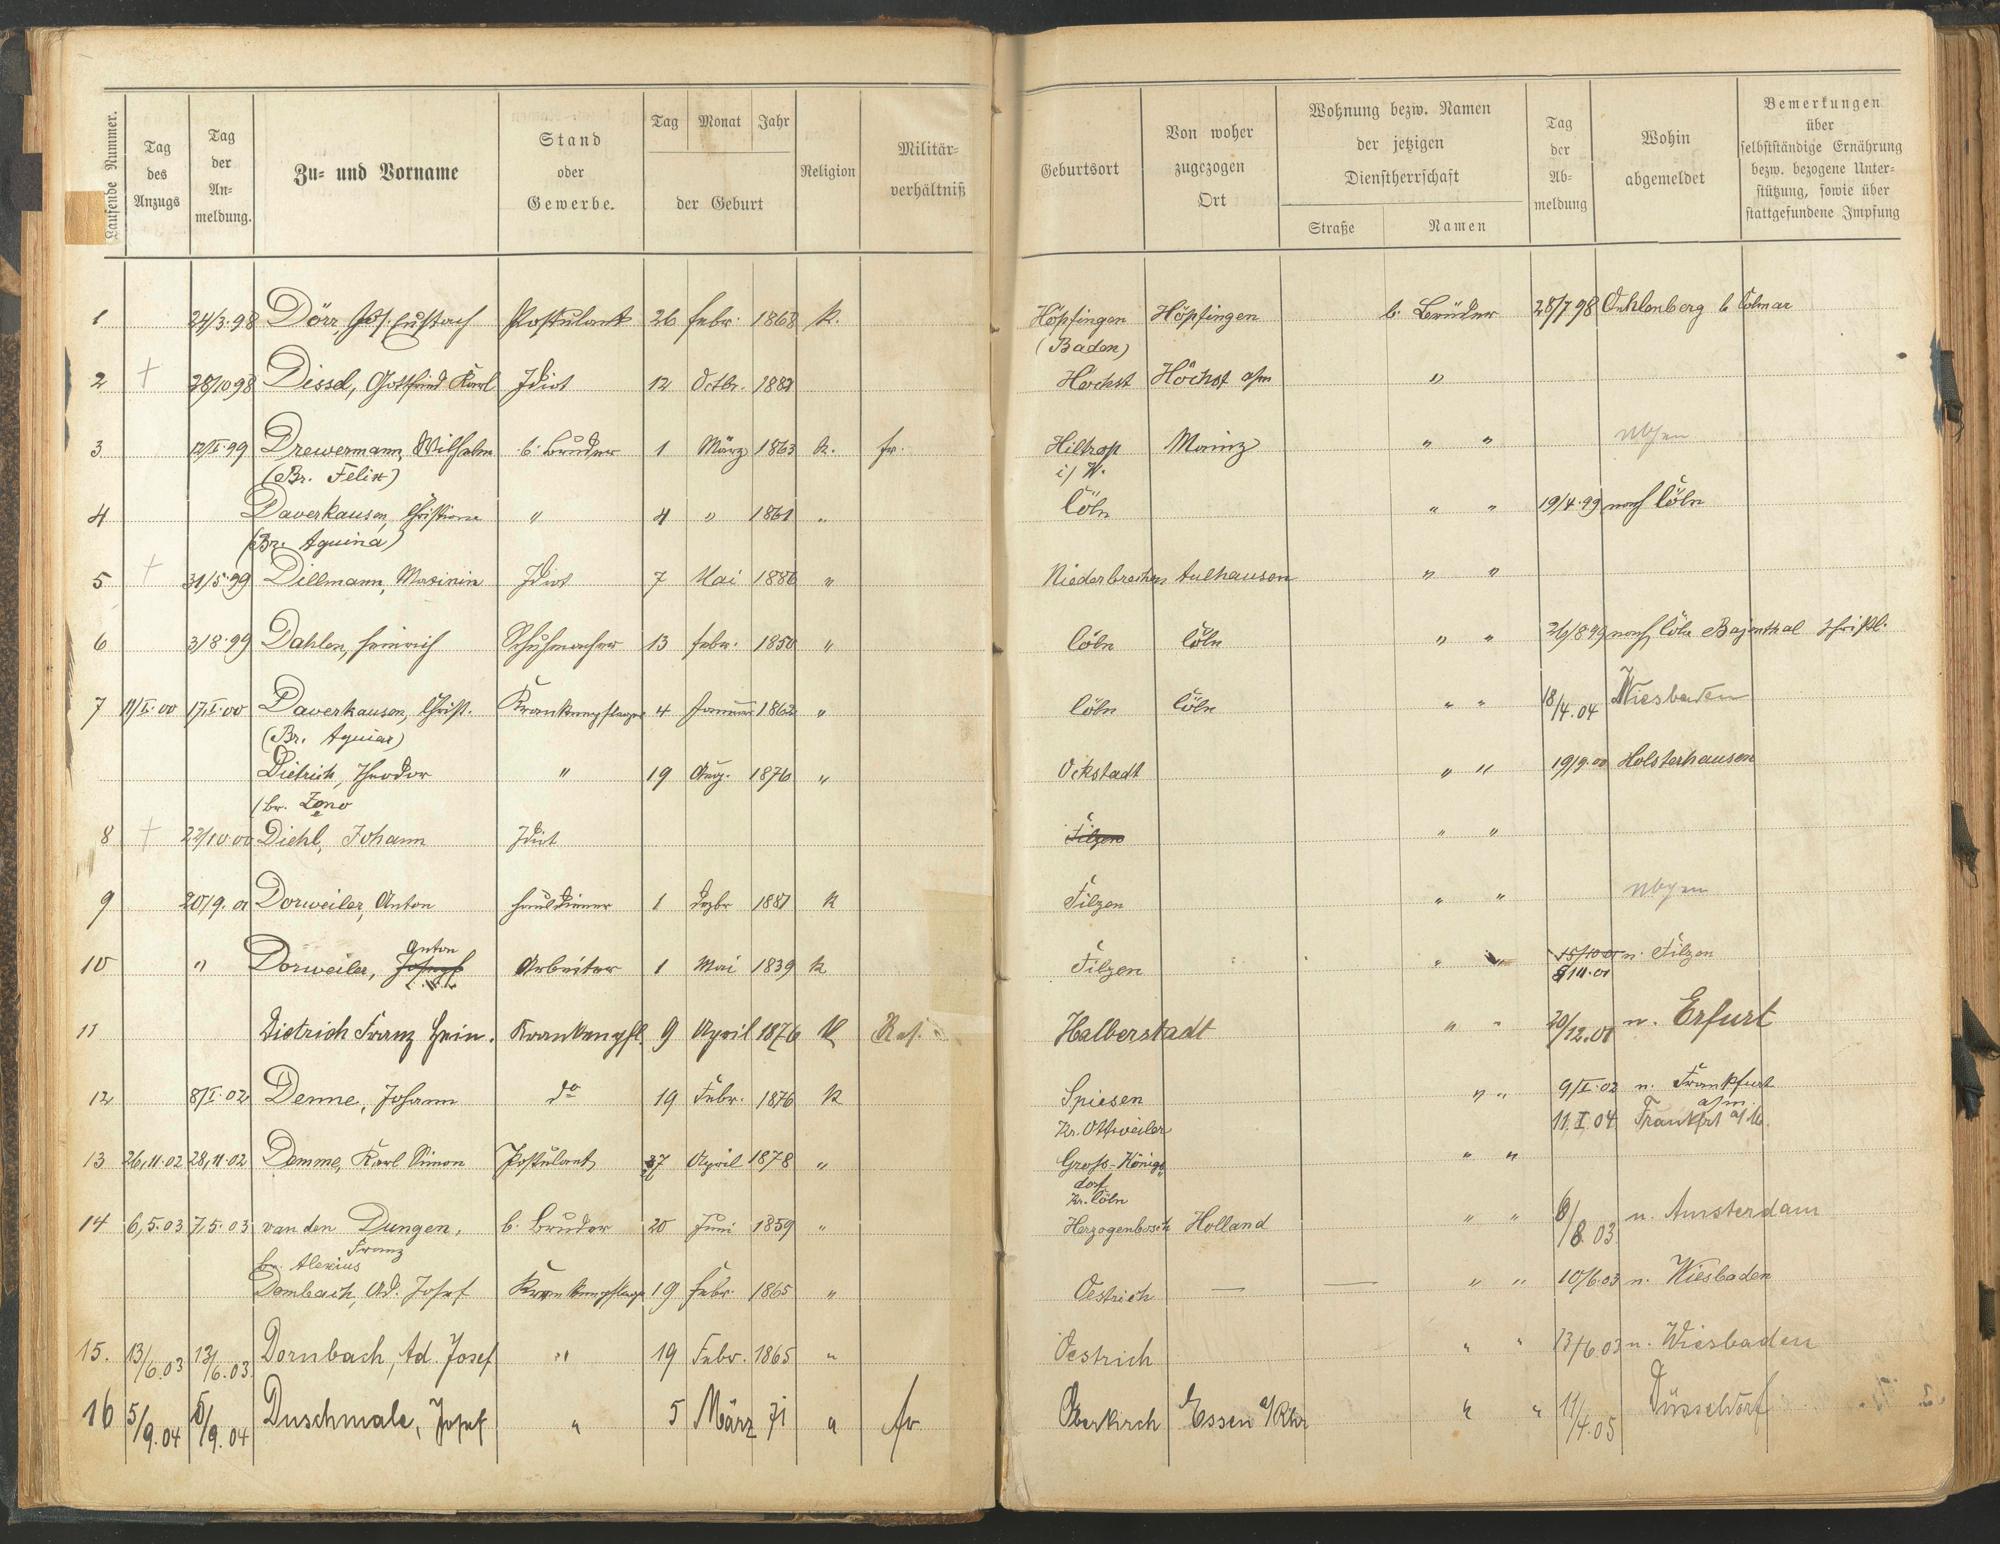 Laufende Nummer.
Tag des Anzugs
Tag der An- meldung.
Zu- und Vorname
Stand oder Gewerbe.
Tag Monat Jahr
der Geburt
Religion
Militär- verhältniß
Geburtsort
Von woher zugezogen Ort
Wohnung bezw. Namen der jetzigen Dienstherrschaft
Straße Namen
Tag der Ab- meldung
Wohin abgemeldet
Bemerkungen über selbstständige Ernährung bezw. bezogene Unter- stützung, sowie über stattgefundene Impfung
1 24/3.98 Dörr Jos. Eustach Postulant 26 Febr. 1868 k. Höpfingen Höpfingen b. Brüder 28/7 98 b Colmar
(Baden)
2 † 28/10 98 Dissel, Gottfried Karl Idiot 12 Octbr. Höchst Höchst a/m "
3 12/I.99 Drewermann, Wilhelm b. Bruder 1 März 1863 k. fr. Hiltrop Mainz " "
(Br. Felix) i/W.
4 Daverkausen, " 4 " 1861 " Cöln " " 19/4.99 nach Cöln
(Br. Aquina)
5 † 31/5.99 Dillmann, Idiot 7 Mai 1886 " Niederbrechen Aulhausen " "
6 3/8.99 Dahlen, Heinrich Schuhmacher 13 Febr. 1850 " Cöln Cöln " " 26/8 99 nach Cöln Bajenthal schriftl.
7 11/I.00 17.I.00 Daverkausen, Christ. Krankenpfleger 4 Januar 1862 " Cöln Cöln " " 18/4.04 Wiesbaden
(Br. Aquias)
Dietrich, Theodor " 19 Aug. 1876 " Ockstadt " " 19/9.00 Holsterhausen
(br. Zeno
8 † 22/10.00 Diehl, Johann Idiot Filzen " "
9 20/9.01 Dorweiler, Anton Hausdiener 1 Dezbr 1881 k Filzen " "
10 " Dorweiler, Josef Anton Arbeiter 1 Mai 1839 k Filzen " " 15/10 01 n. Filzen
11 Dietrich Franz Hein. Krankenpfl. 9 April 1876 k Res. Halberstadt " " 20/12.01 n. Erfurt
12 8/I.02 Denne, Johann do 19 Febr. 1876 k Spiesen " " 9/I.02 n. Frankfurt a/m.
Kr. Ottweiler 11.I.04 Frankfrt a/M.
13 26,11.02 28,11.02 Demme, Karl Simon Postulant 27 April 1878 " Groß-Königs " "
dorf
Kr. Cöln
14 6,5.03 7.5.03 van den Dungen, b. Bruder 20 Juni 1859 " Herzogenbosch Holland " " 6/8.03 n. Amsterdam
Franz
br. Alexius
Dornbach, Ad. Josef Krankenpfleger 19 Febr. 1865 " Oestrich — — " " 10/6.03 n. Wiesbaden
15. 13/6.03 13/6.03 Dornbach, Ad. Josef " 19 Febr. 1865 " Oestrich " " 13/6.03 n. Wiesbaden
16 5/9.04 5/9.04 Duschmale, Josef " 5 März 71 " fr. Oberkirch Essen a/Rhr " " 11/4.05 Düsseldorf